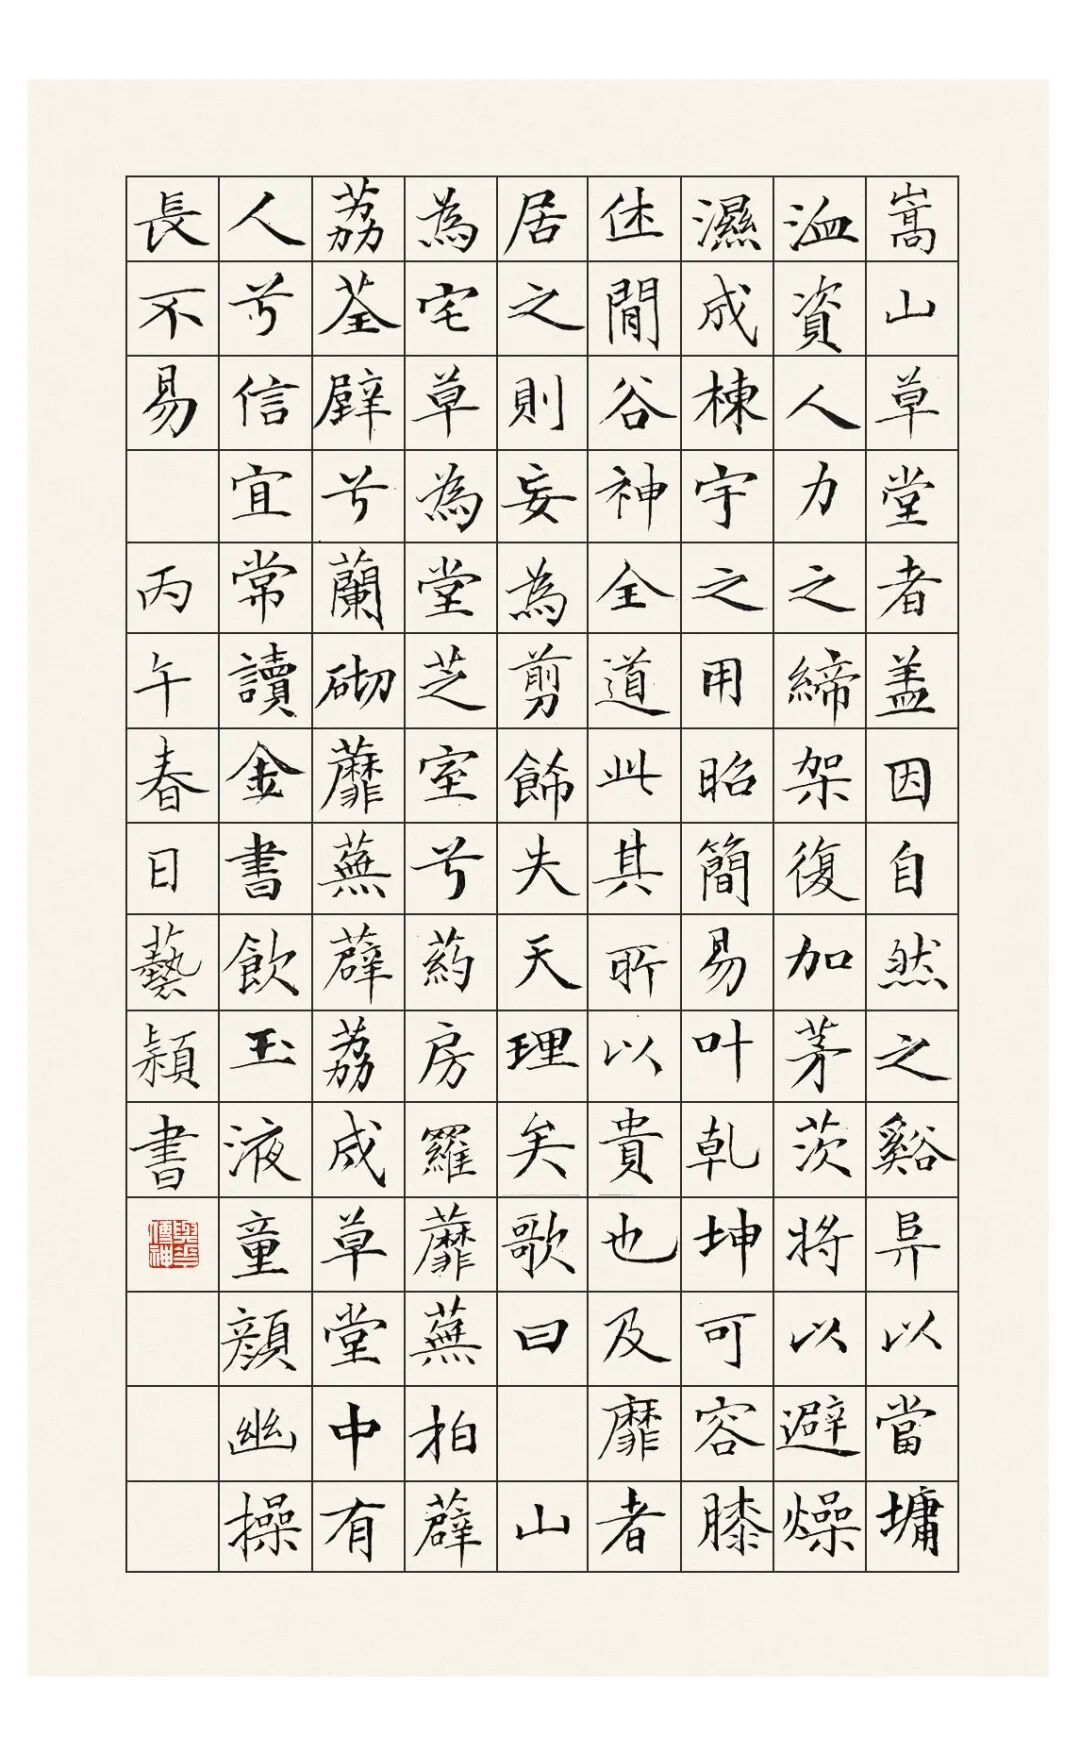 嵩山草堂者盖因自然之谿阜以當墉
洫資人力之締架復加茅茨將以避燥
濕成棟宇之用昭簡易叶乾坤可容膝
休閒谷神全道此其所以貴也及靡者
居之則妄為剪餙失天理矣歌曰 山
為宅草為堂芝室兮葯房羅蘼蕪拍薜
荔荃辟兮蘭砌蘼蕪薜荔成草堂中有
人兮信宜常讀金書飲玉液童顏幽操
長不易 丙午春日藝潁書